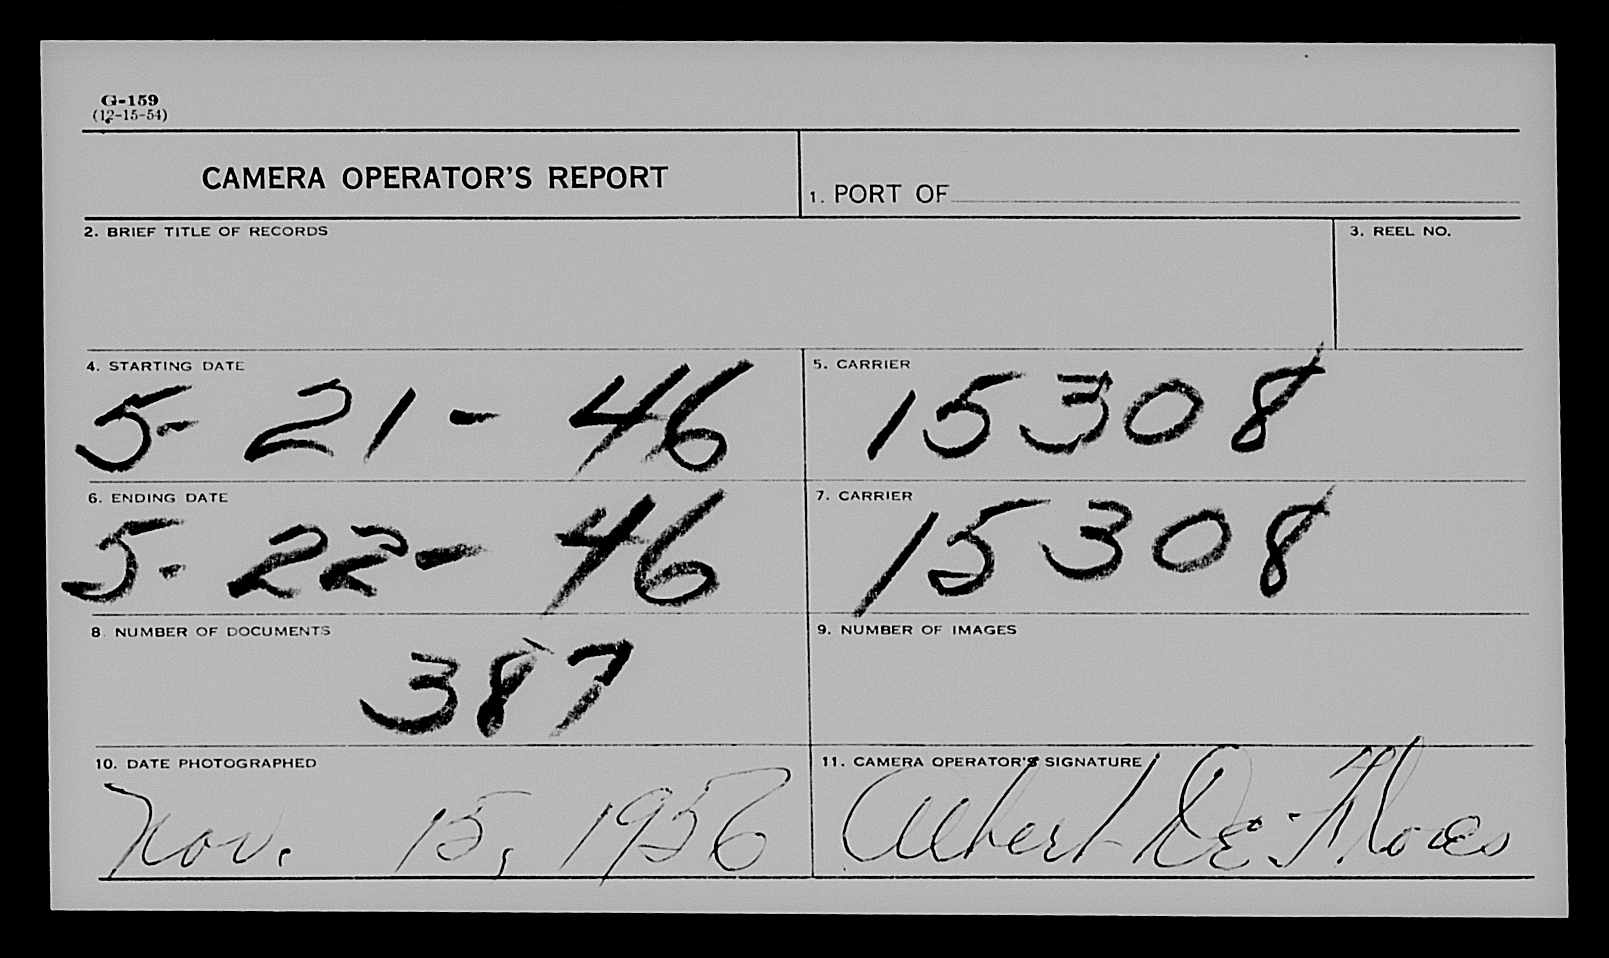 G-159
(12-15-54)
CAMERA OPERATOR'S REPORT
1. PORT OF
2. BRIEF TITLE OF RECORDS
3. REEL NO.
4. STARTING DATE
5- 21 - 46
5. CARRIER
15308
6. ENDING DATE
5- 22- 46
7. CARRIER
15308
8. NUMBER OF DOCUMENTS
387
9. NUMBER OF IMAGES
10. DATE PHOTOGRAPHED
Nov. 15, 1956
11. CAMERA OPERATOR'S SIGNATURE
Albert De